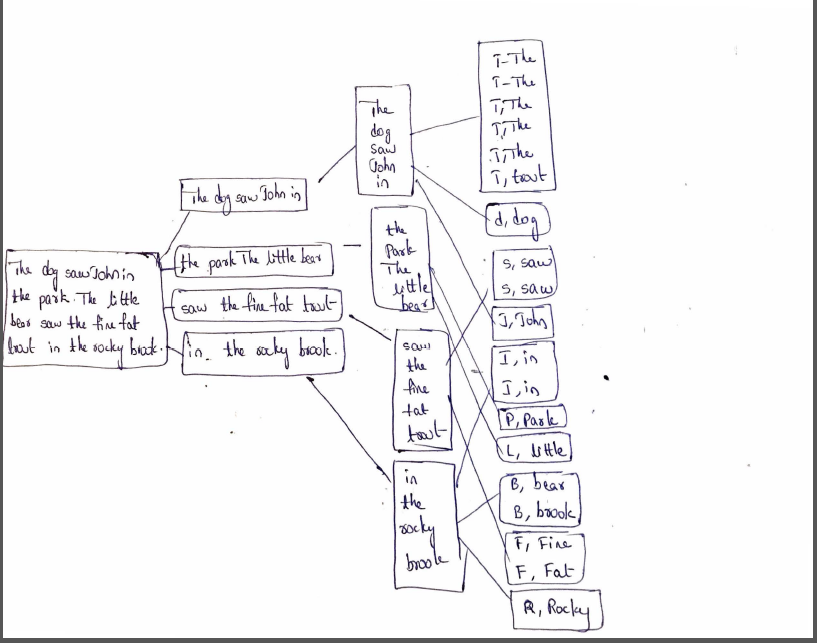 The dog saw John in
the park. The little
bear saw the fine fat
trout in the rocky brook.
The dog saw John in
the park The little bear
saw the fine fat trout
in the rocky brook.
The
dog
saw
John
in
the
Park
The
little
bear
saw
the
fine
fat
trout
in
the
rocky
brook
T-The
T-The
T, The
T, The
T, The
T, trout
d, dog
s, saw
s, saw
J, John
I, in
I, in
P, Park
L, little
B, bear
B, brook
F, Fine
F, Fat
R, Rocky